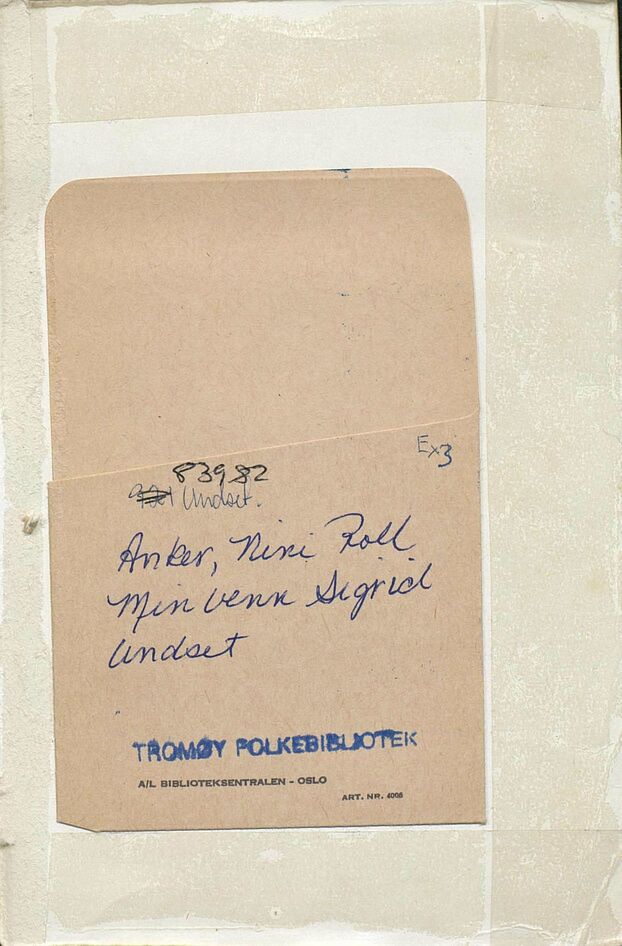 Ex3
83982
Undset.
Anker, Nini Roll
Min venn Sigrid
Undset
TROMØY FOLKEBIBLIOTEK
A/L BIBLIOTEKSENTRALEN - OSLO
ART. NR. 4006